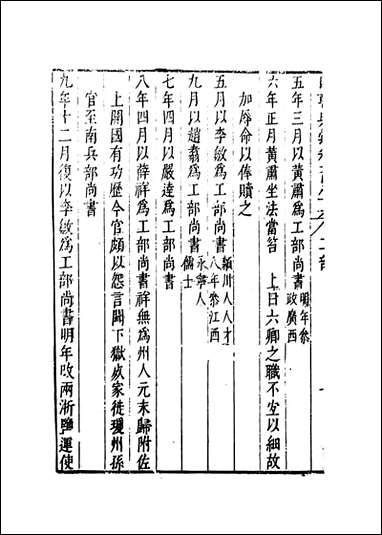 五年三月以黃肅爲工部尚書明年叅政廣西
六年正月黃肅坐法當笞　上曰六卿之職不宜以細故
加辱命以俸贖之
五月以李敏爲工部尚書潁川人人才八年叅江西
九月以趙翥爲工部尚書永寧人儒士
七年四月以嚴達爲工部尚書
八年四月以薛祥爲工部尚書祥無爲州人元末歸附佐
上開國有功歷今官頗以怨言聞下獄戍家徙瓊州孫
官至南兵部尚書
九年十二月復以李敏爲工部尚書明年改兩浙鹽運使